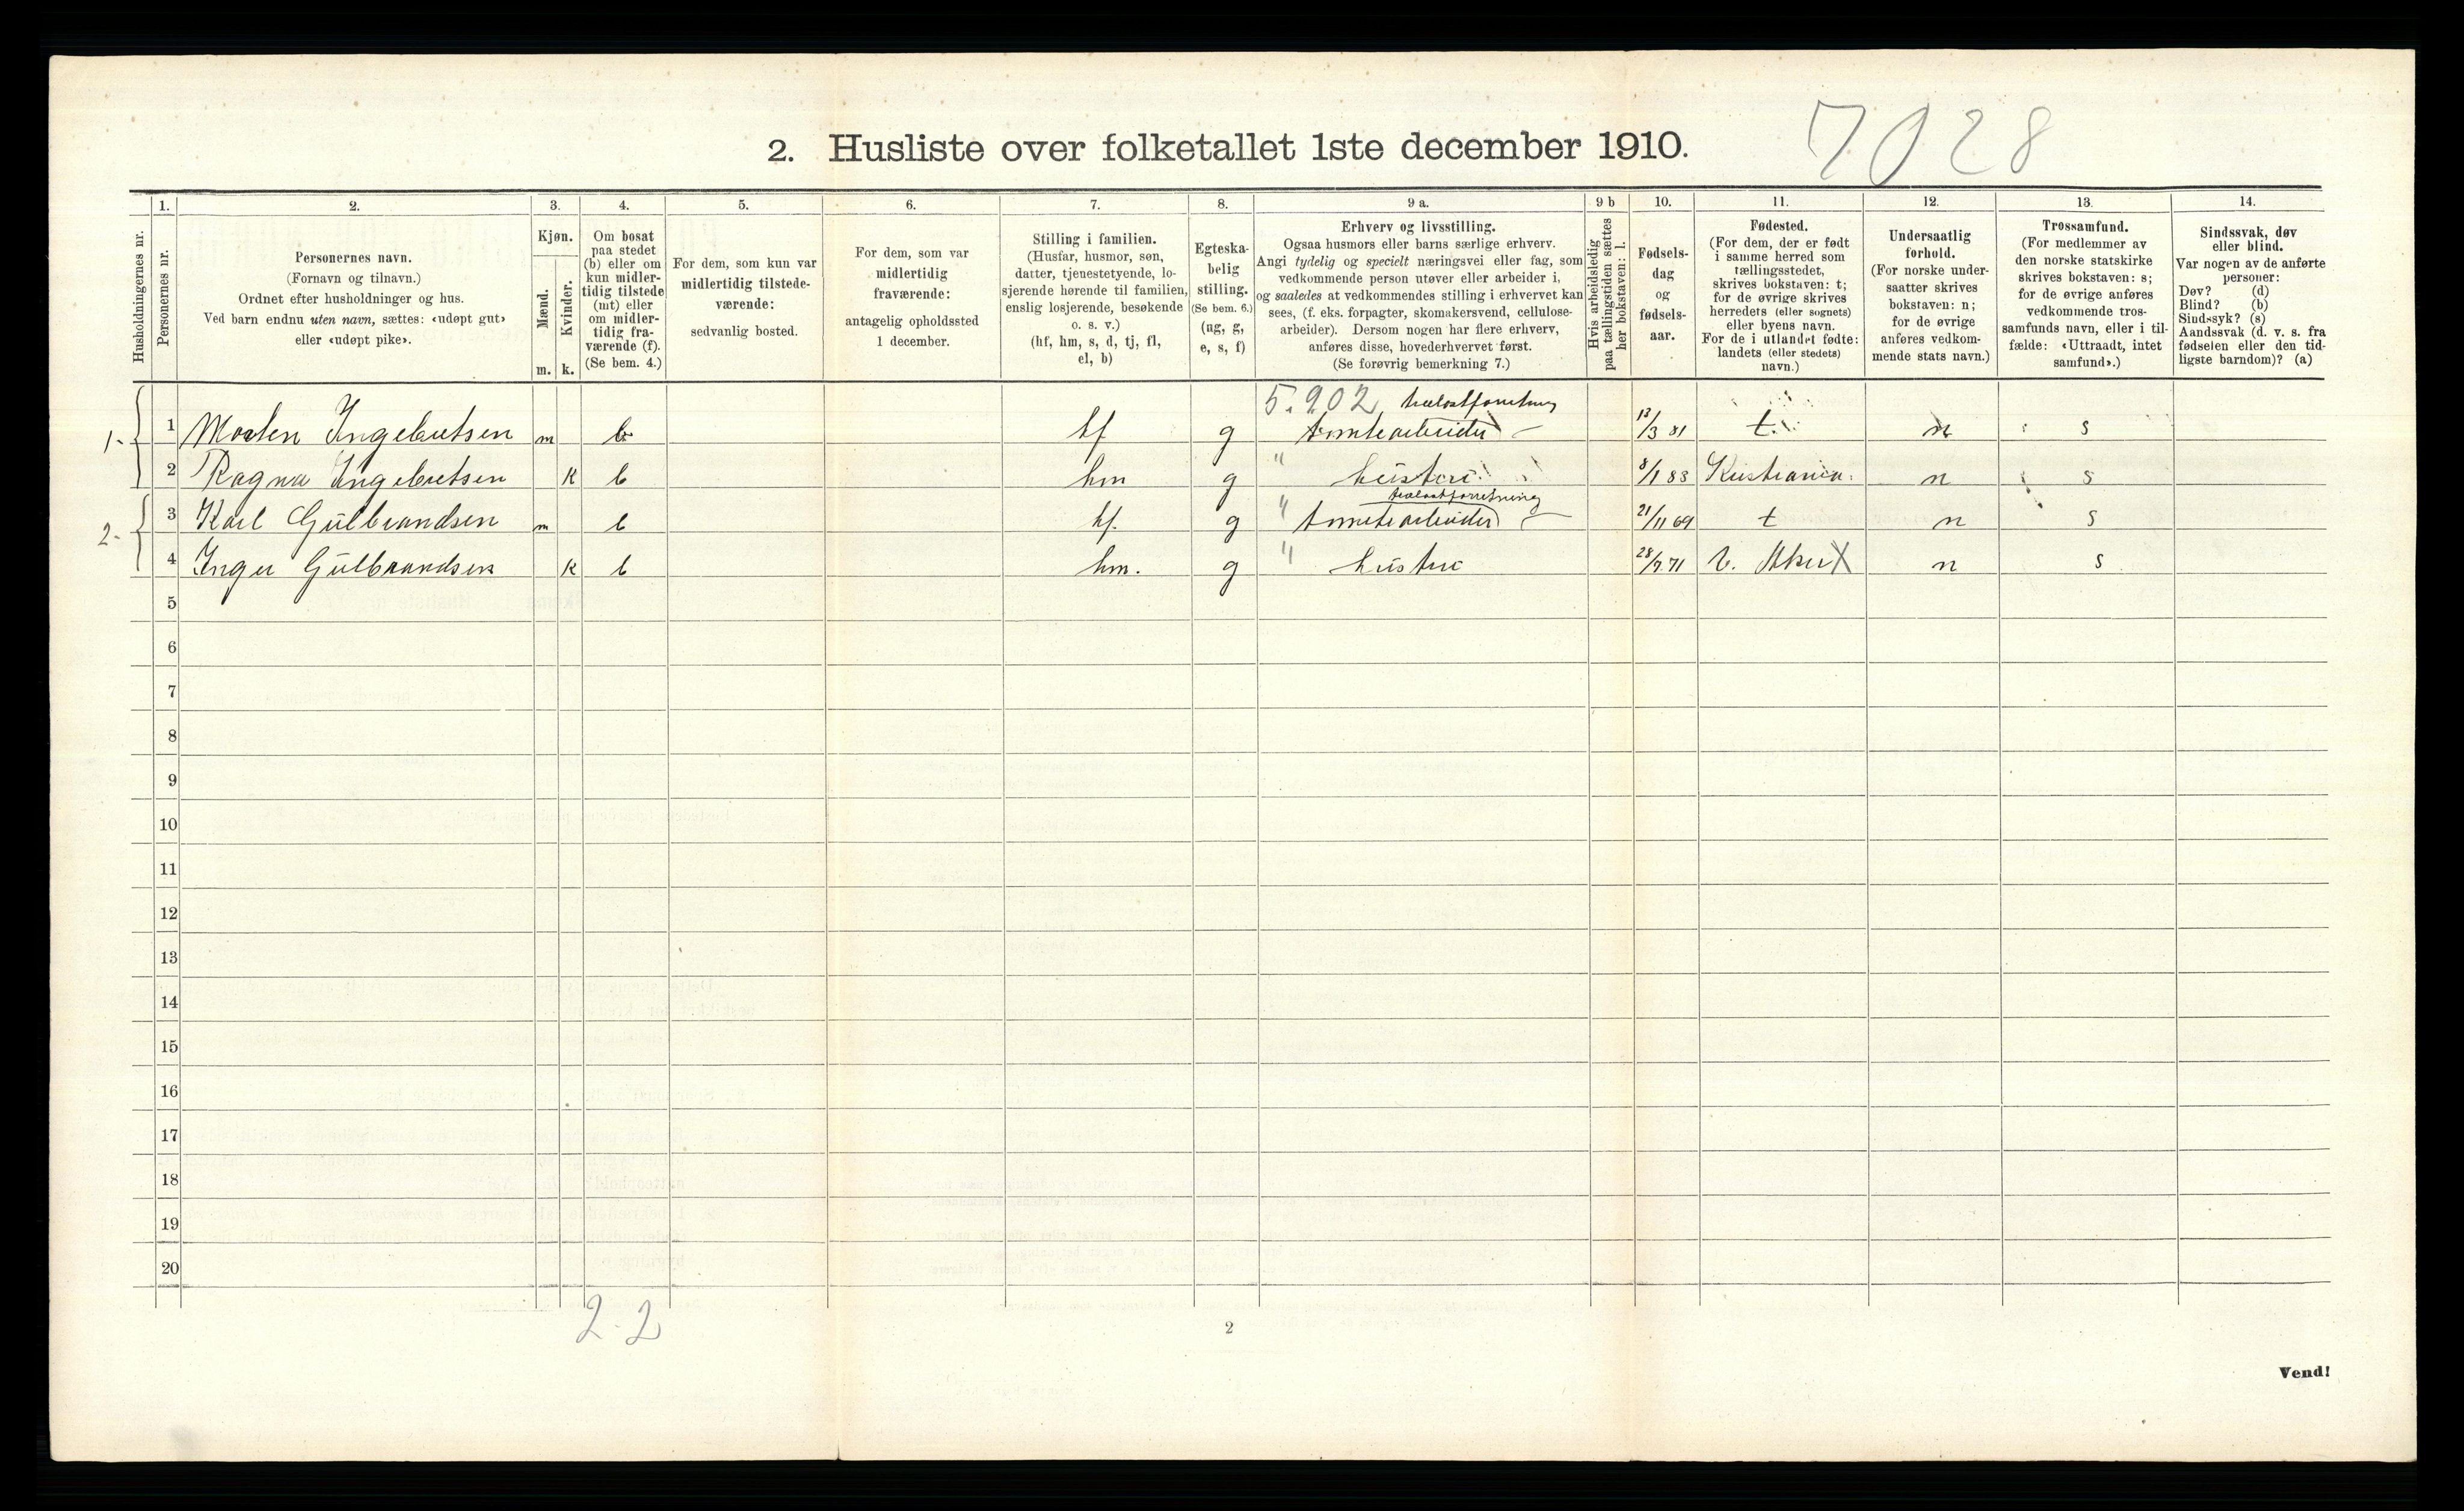 7028
2. Husliste over folketallet 1ste december 1910.
Husholdningernes nr.
1.
Personernes nr.
2.
Personernes navn.
(Fornavn og tilnavn.)
Ordnet efter husholdninger og hus.
Ved barn endnu uten navn, sættes: «udøpt gut»
eller «udøpt pike».
3.
Kjøn.
Mænd.
Kvinder.
m. k.
4.
Om bosat
paa stedet
(b) eller om
kun midler-
tidig tilstede
(mt) eller
om midler-
tidig fra-
værende (f).
(Se bem. 4.)
5.
For dem, som kun var
midlertidig tilstede-
værende:
sedvanlig bosted.
6.
For dem, som var
midlertidig
fraværende:
antagelig opholdssted
1 december.
7.
Stilling i familien.
(Husfar, husmor, søn,
datter, tjenestetyende, lo-
sjerende hørende til familien,
enslig losjerende, besøkende
o. s. v.)
(hf, hm, s, d, tj, fl,
el, b)
8.
Egteska-
belig
stilling.
(Se bem. 6.)
(ug, g,
e, s, f)
9 a.
Erhverv og livsstilling.
Ogsaa husmors eller barns særlige erhverv.
Angi tydelig og specielt næringsvei eller fag, som
vedkommende person utøver eller arbeider i,
og saaledes at vedkommendes stilling i erhvervet kan
sees, (f. eks. forpagter, skomakersvend, cellulose-
arbeider). Dersom nogen har flere erhverv,
anføres disse, hovederhvervet først.
(Se forøvrig bemerkning 7.)
9 b
Hvis arbeidsledig
paa tællingstiden sættes
her bokstaven: l.
10.
Fødsels-
dag
og
fødsels-
aar.
11.
Fødested.
(For dem, der er født
i samme herred som
tællingsstedet,
skrives bokstaven: t;
for de øvrige skrives
herredets (eller sognets)
eller byens navn.
For de i utlandet fødte:
landets (eller stedets)
navn.)
12.
Undersaatlig
forhold.
(For norske under-
saatter skrives
bokstaven: n;
for de øvrige
anføres vedkom-
mende stats navn.)
13.
Trossamfund.
(For medlemmer av
den norske statskirke
skrives bokstaven: s;
for de øvrige anføres
vedkommende tros-
samfunds navn, eller i til-
fælde: «Uttraadt, intet
samfund».)
14.
Sindssvak, døv
eller blind.
Var nogen av de anførte
personer:
Døv? (d)
Blind? (b)
Sindssyk? (s)
Aandssvak (d. v. s. fra
fødselen eller den tid-
ligste barndom)? (a)
5.202 trælastforretning
1- 1 Morten Ingebretsen m b hf g tomtearbeider 13/3 81 t. n s
2 Ragna Ingebretsen k b hm g " hustru 8/1 83 Kristiania. n s
trælastforretning
2- 3 Karl Gulbrandsen m b hf. g " tomtearbeider 21/11 69 t n s
4 Inger Gulbrandsen k b hm. g " hustru 28/7 71 V. Aker X n s
5
6
7
8
9
10
11
12
13
14
15
16
17
18
19
20
2-2
2
Vend!